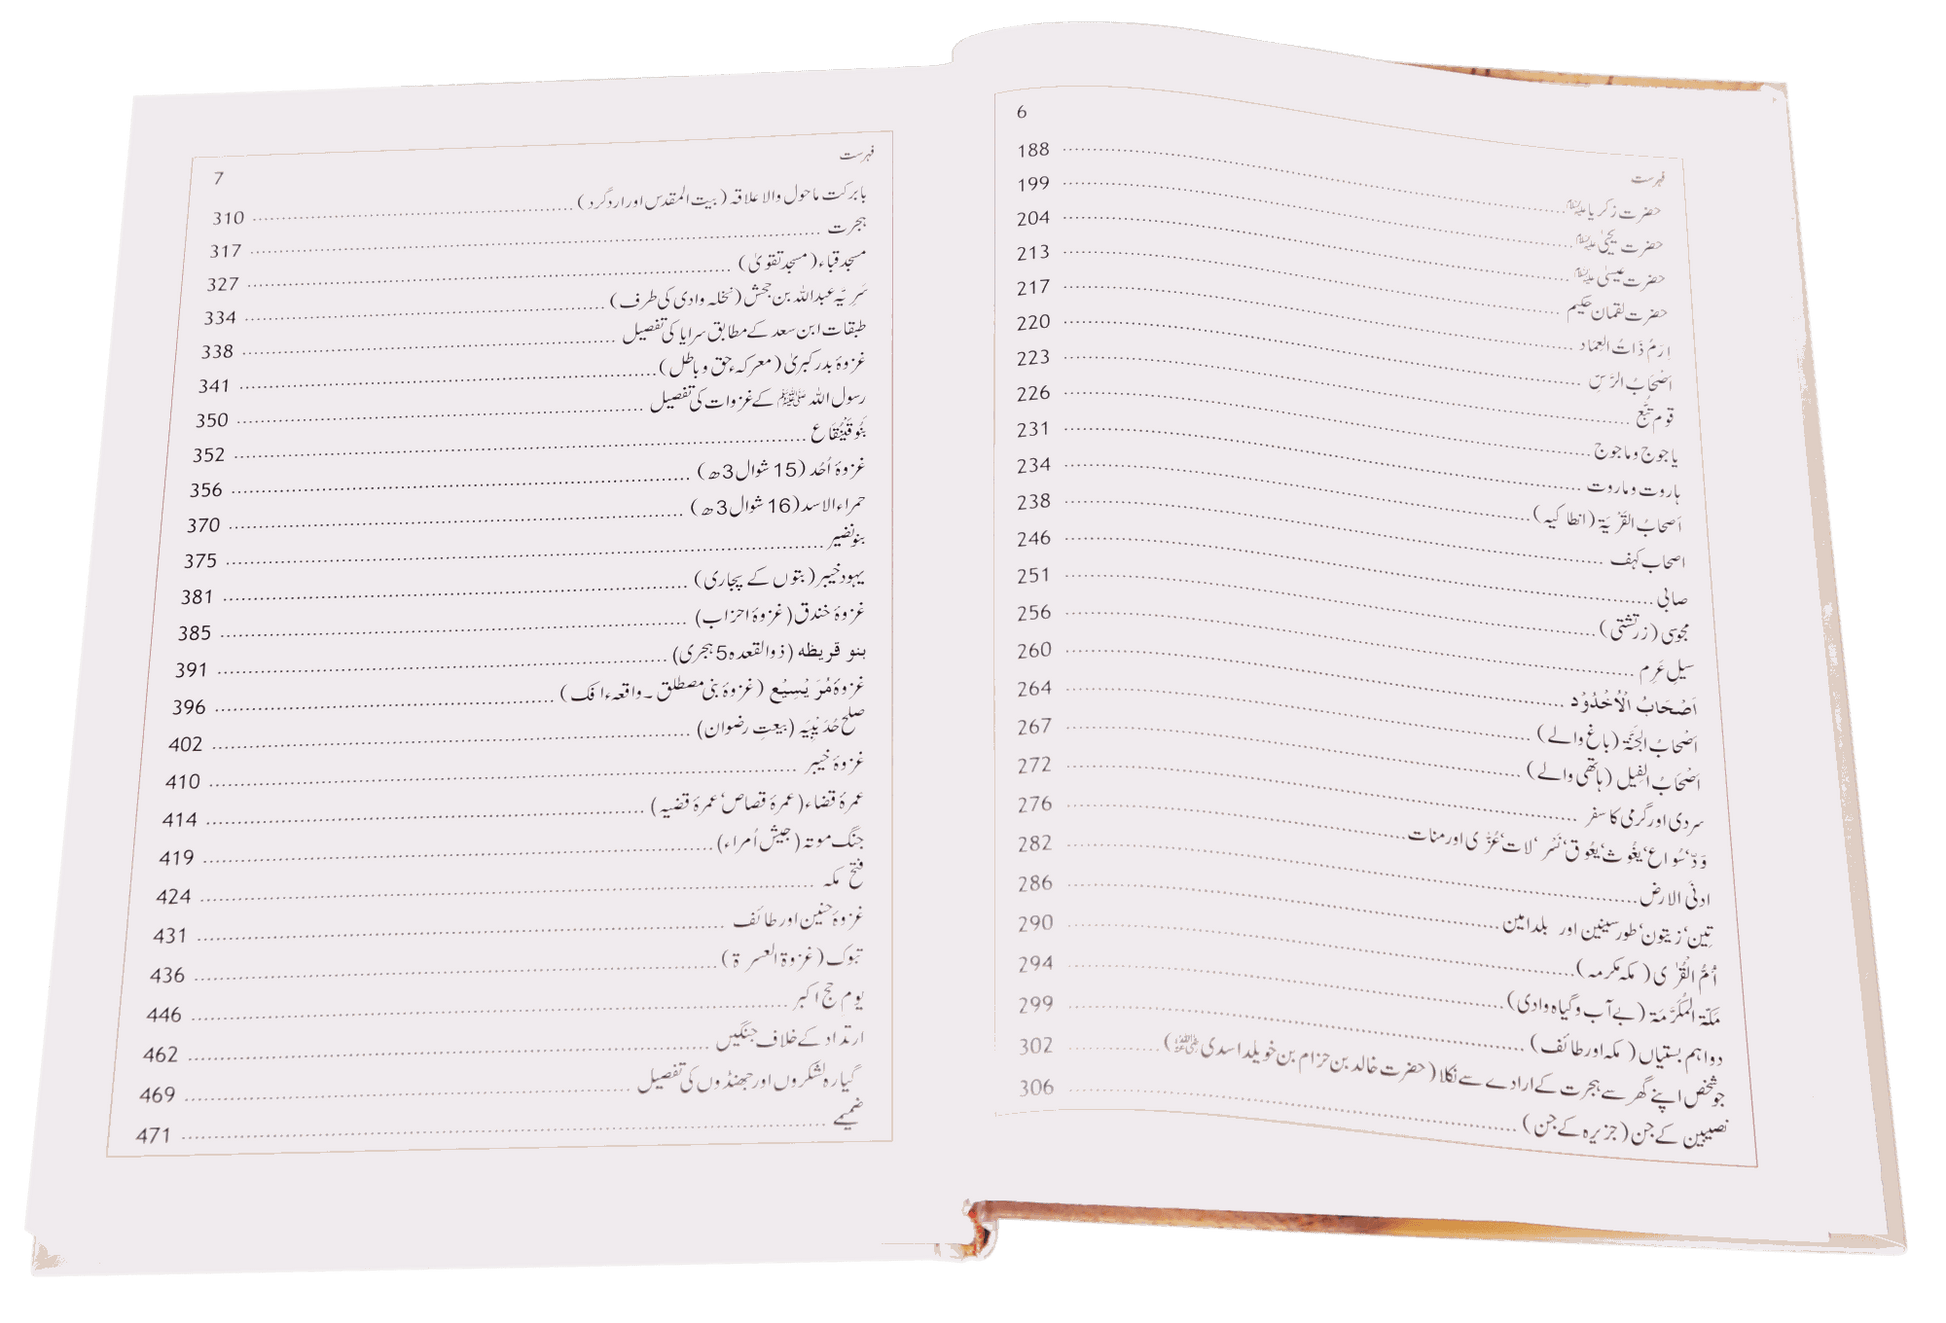 6
فہرست
حضرت زکریا علیہ السلام ........ 188
حضرت یحییٰ علیہ السلام ........ 199
حضرت عیسیٰ علیہ السلام ........ 204
حضرت لقمان حکیم ........ 213
اِرَمَ ذَاتُ العِمَاد ........ 217
اَصْحَابُ الرَّسّ ........ 220
قوم تُبَّع ........ 223
یاجوج وماجوج ........ 226
ہاروت وماروت ........ 231
اَصْحَابُ القَرْیَة (انطاکیہ) ........ 234
اصحاب کہف ........ 238
صابی ........ 246
مجوسی (زرتشتی) ........ 251
سیلِ عَرِم ........ 256
اَصْحَابُ الْاُخْدُوْد ........ 260
اَصْحَابُ الجَنَّة (باغ والے) ........ 264
اَصْحَابُ الفِیل (ہاتھی والے) ........ 267
سردی اور گرمی کا سفر ........ 272
وَدّ‘ سُواع‘ یَغُوث‘ یَعُوق‘ نَسْر‘ لات‘ عُزّٰی اور منات ........ 276
ادنَی الارض ........ 282
تِین‘ زیتون‘ طور سینین اور بلد امین ........ 286
اُمُّ الْقُرٰی (مکہ مکرمہ) ........ 290
مَکَّة المُکَرَّمَة (بے آب و گیاہ وادی) ........ 294
دو اہم بستیاں (مکہ اور طائف) ........ 299
جو شخص اپنے گھر سے ہجرت کے ارادے سے نکلا (حضرت خالد بن حزام بن خویلد اسدی رضی اللہ عنہ) ........ 302
نصیبین کے جن (جزیرہ کے جن) ........ 306
فہرست
7
بابرکت ماحول والا علاقہ (بیت المقدس اور اردگرد) ........ 310
ہجرت ........ 317
مسجد قباء (مسجد تقویٰ) ........ 327
سَرِیّہ عبداللہ بن جحش (نخلہ وادی کی طرف) ........ 334
طبقات ابن سعد کے مطابق سرایا کی تفصیل ........ 338
غزوۂ بدر کبریٰ (معرکہء حق و باطل) ........ 341
رسول اللہ ﷺ کے غزوات کی تفصیل ........ 350
بَنُو قَیْنُقَاع ........ 352
غزوۂ اُحُد (15 شوال 3ھ) ........ 356
حمراء الاسد (16 شوال 3ھ) ........ 370
بنو نضیر ........ 375
یہود خیبر (بتوں کے پجاری) ........ 381
غزوۂ خندق (غزوۂ احزاب) ........ 385
بنو قریظه (ذوالقعدہ 5 ہجری) ........ 391
غزوۂ مُرَیْسِیْع (غزوۂ بنی مصطلق ۔ واقعہء افک) ........ 396
صلح حُدَیْبِیَہ (بیعتِ رضوان) ........ 402
غزوۂ خیبر ........ 410
عمرۂ قضاء (عمرۂ قصاص‘ عمرۂ قضیہ) ........ 414
جنگ موتہ (جیش اُمراء) ........ 419
فتح مکہ ........ 424
غزوۂ حنین اور طائف ........ 431
تبوک (غزوة العسرة) ........ 436
یوم حج اکبر ........ 446
ارتداد کے خلاف جنگیں ........ 462
گیارہ لشکروں اور جھنڈوں کی تفصیل ........ 469
ضمیمے ........ 471